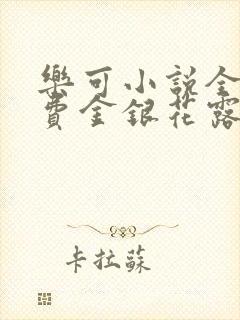 樂可小說全
費金銀花露
卡拉蘇